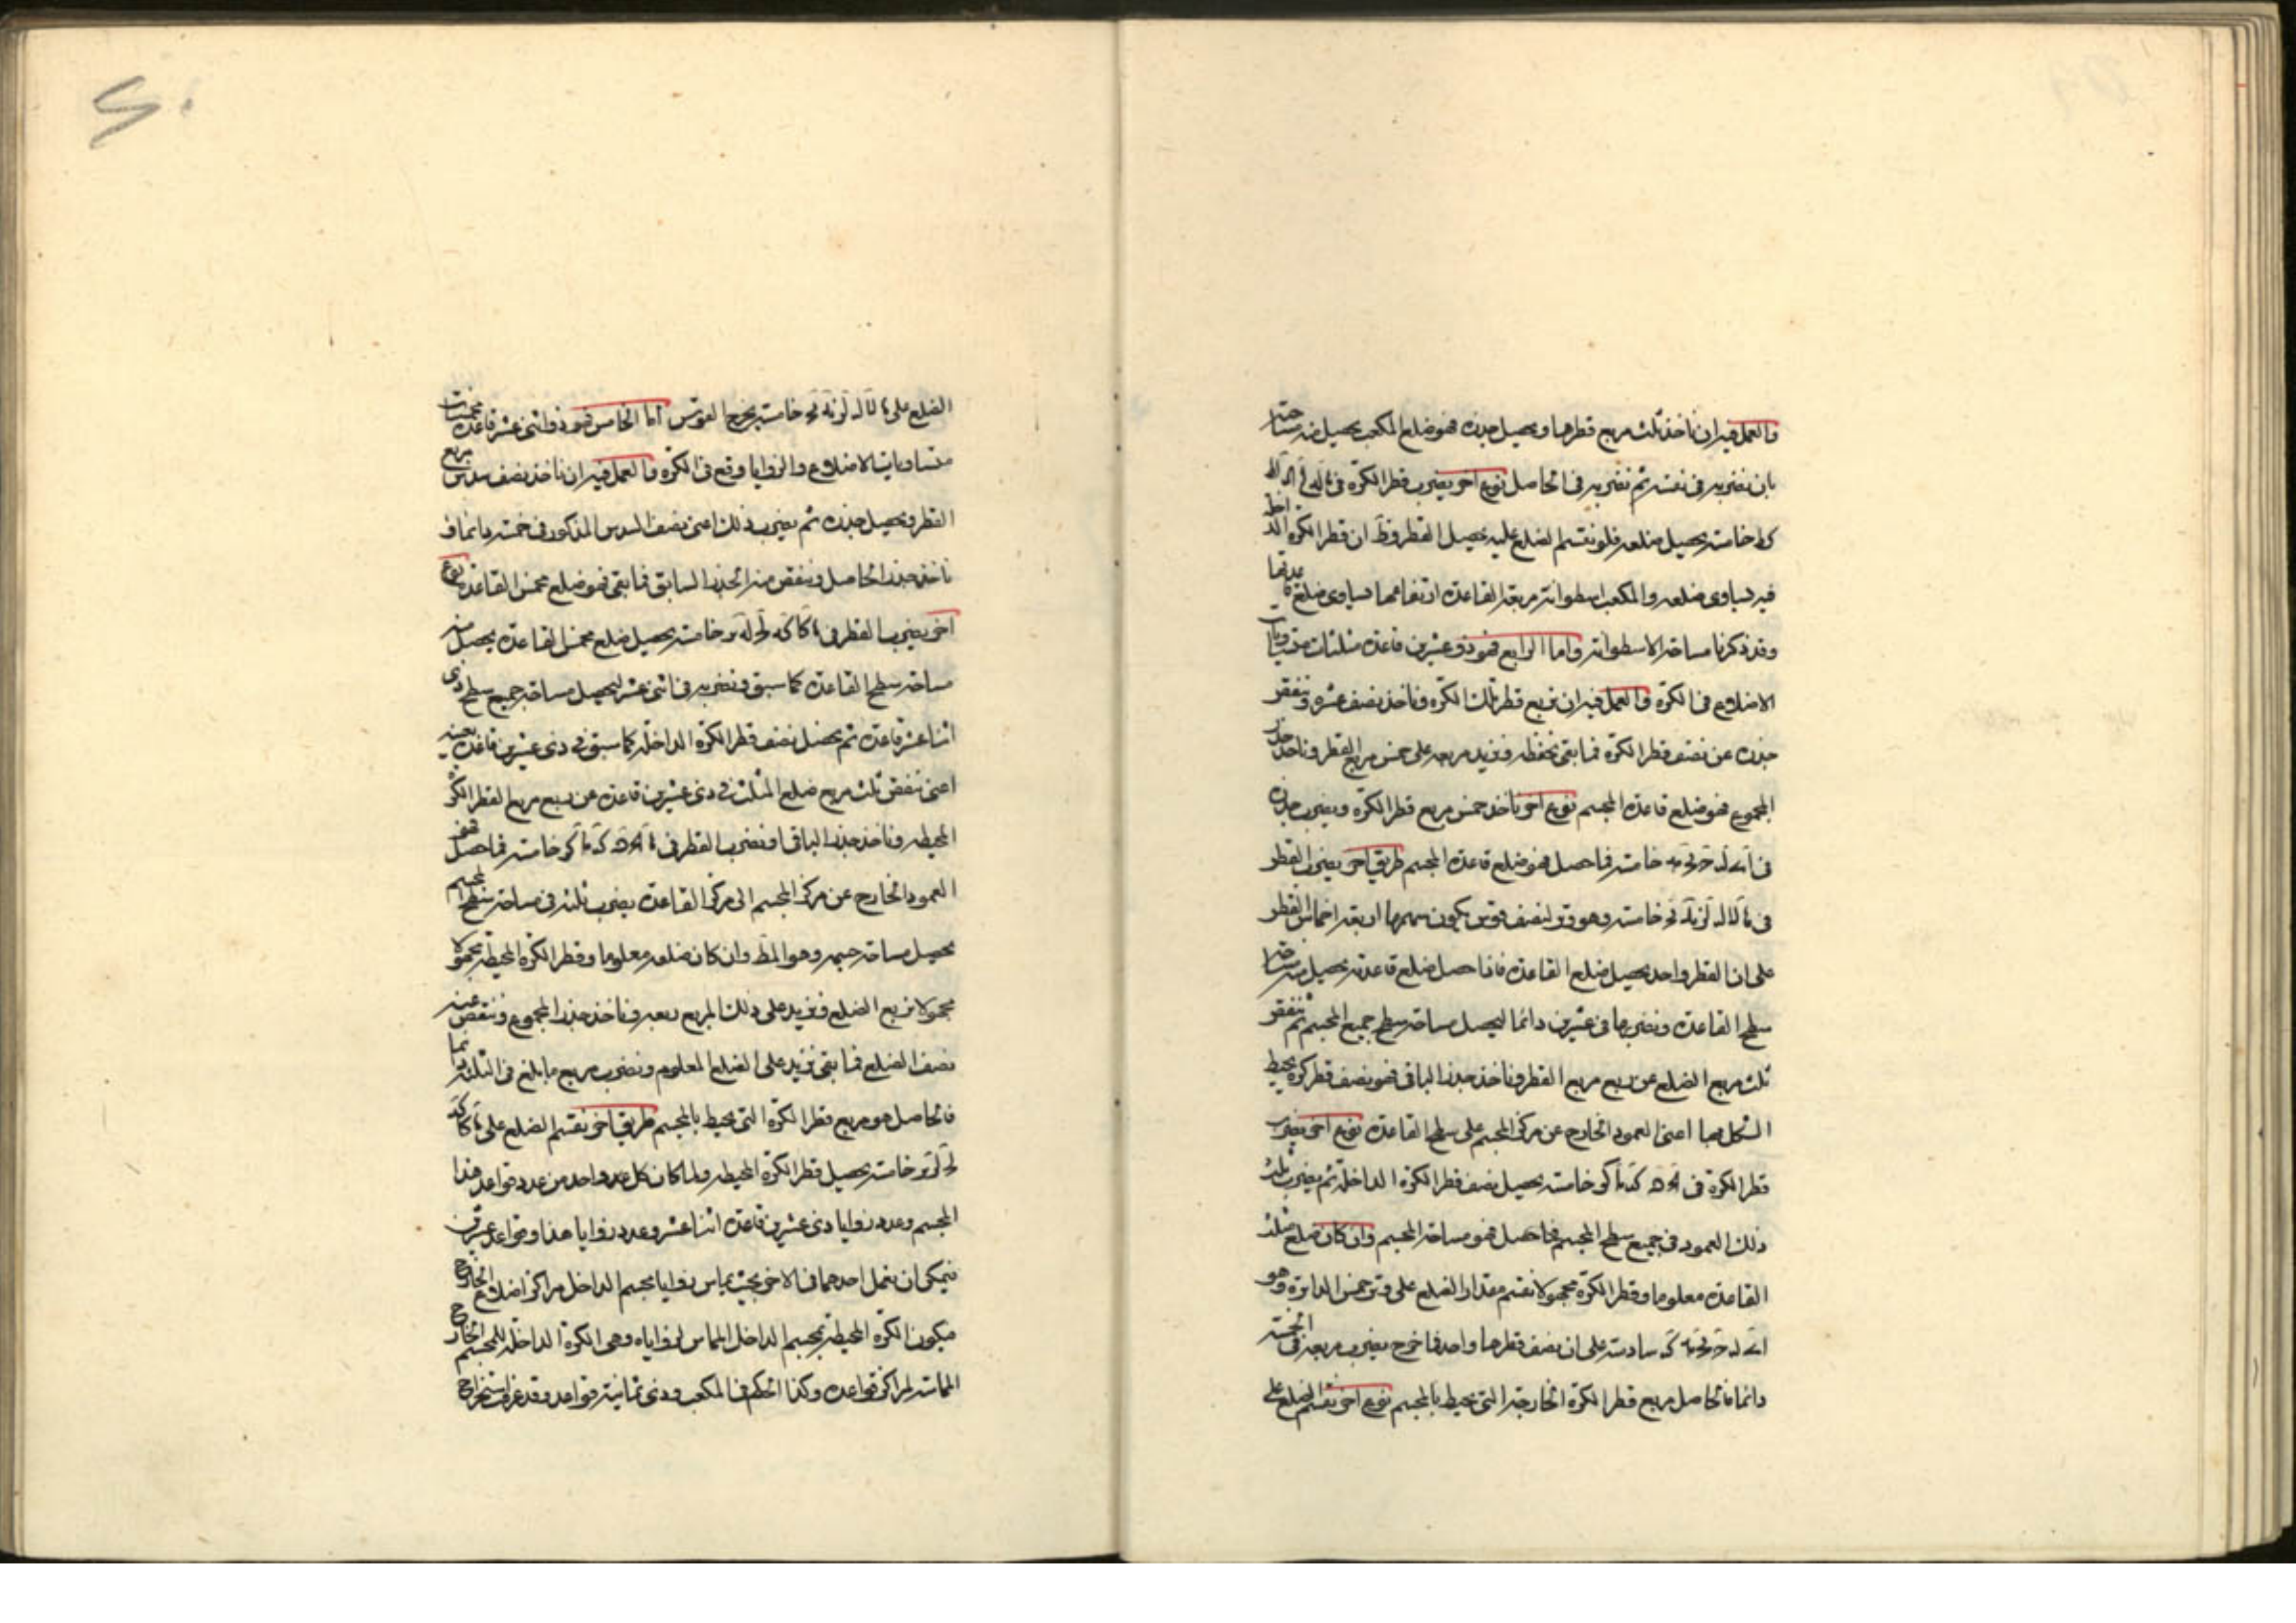 والعمل فيه ان ناخذ ثلث مربع قطرها ونحصل جذره فهو ضلع المكعب يحصل منه مساحته
بان نضربه في نفسه ثم نضربه في الحاصل نوع آخر نضرب قطر الكرة في
خامسة يحصل ضلعه فلو نقسم الضلع عليه يحصل القطر وظ ان قطر الكرة
فيه يساوى ضلعه والمكعب اسطوانة مربعة القاعدة ارتفاعها يساوى ضلع قاعدتها
وقد ذكرنا مساحة الاسطوانة واما الرابع فهو ذو عشرين قاعدة مثلثات متساويات
الاضلاع في الكرة والعمل فيه ان نربع قطر تلك الكرة وناخذ نصف عشره وننقص
جذره عن نصف قطر الكرة فما بقى نحفظه ونزيد مربعه على خمس مربع القطر وناخذ جذر
المجموع فهو ضلع قاعدة المجسم نوع آخر ناخذ خمس مربع قطر الكرة ونضرب جذره
في خامسة فما حصل فهو ضلع قاعدة المجسم طريق آخر نضرب القطر
في خامسة وهو وتر لنصف قوس يكون سهمها اربعة اخماس القطر
على ان القطر واحد يحصل ضلع القاعدة فاذا حصل ضلع قاعدته يحصل منه مساحة
سطح القاعدة ونضربها في عشرين دائما ليحصل مساحة سطح جميع المجسم ثم ننقص
ثلث مربع الضلع عن ربع مربع القطر وناخذ جذر الباقى فهو نصف قطر كرة يحيط
الشكل بها اعنى العمود الخارج عن مركز المجسم على سطح القاعدة نوع آخر نضرب
قطر الكرة في خامسة يحصل نصف قطر الكرة الداخلة ثم نضرب ثلث
ذلك العمود في جميع سطح المجسم فما حصل فهو مساحة المجسم وان كان ضلع مثلث
القاعدة معلوما وقطر الكرة مجهولا نقسم مقدار الضلع على وتر خمس الدائرة وهو
سادسة على ان نصف قطرها واحد فما خرج نضرب مربعه في الخمسة
دائما فالحاصل مربع قطر الكرة الخارجة التى تحيط بالمجسم نوع آخر نقسم الضلع على
الضلع على خامسة يخرج القوس اما الخامس فهو ذو اثنى عشر قاعدة مخمسات
متساويات الاضلاع والزوايا وقع في الكرة والعمل فيه ان ناخذ نصف سدس مربع
القطر ونحصل جذره ثم نضرب ذلك اعنى نصف السدس المذكور في خمسة دائما و
ناخذ جذر الحاصل وننقص منه الجذر السابق فما بقى فهو ضلع مخمس القاعدة نوع
آخر نضرب القطر في خامسة يحصل ضلع مخمس القاعدة يحصل منه
مساحة سطح القاعدة كما سبق ونضربه في اثنى عشر ليحصل مساحة جميع سطح ذى
اثنا عشر قاعدة ثم نحصل نصف قطر الكرة الداخلة كما سبق في ذى عشرين قاعدة بعينه
اعنى ننقص ثلث مربع ضلع المثلث في ذى عشرين قاعدة عن ربع مربع القطر الكرة
المحيطة وناخذ جذر الباقى او نضرب القطر في خامسة فما حصل فهو
العمود الخارج عن مركز المجسم الى مركز القاعدة نضرب ثلثه في مساحة سطح المجسم
يحصل مساحة جسمه وهو المط وان كان ضلعه معلوما وقطر الكرة المحيطة مجهولا
مجهولا نربع الضلع ونزيد على ذلك المربع ربعه وناخذ جذر المجموع وننقص عنه
نصف الضلع فما بقى نزيد على الضلع المعلوم ونضرب مربع ما بلغ في الثلثة دائما
فالحاصل هو مربع قطر الكرة التى تحيط بالمجسم طريق آخر نقسم الضلع على
خامسة يحصل قطر الكرة المحيطة ولما كان كل عدد واحد من عدد قواعد هذا
المجسم وعدد زوايا ذى عشرين قاعدة اثنا عشر وعدد زوايا هذا وقواعد عشرين
فيمكن ان يعمل احدهما في الآخر بحيث يماس زوايا مجسم الداخل مراكز اضلاع الخارج
فيكون الكرة المحيطة بمجسم الداخل المماس لزواياه وهى الكرة الداخلة للمجسم الخارج
المماسة لمراكز قواعده وكذا الحكم في المكعب وذى ثمانية قواعد وقد عرف استخراج